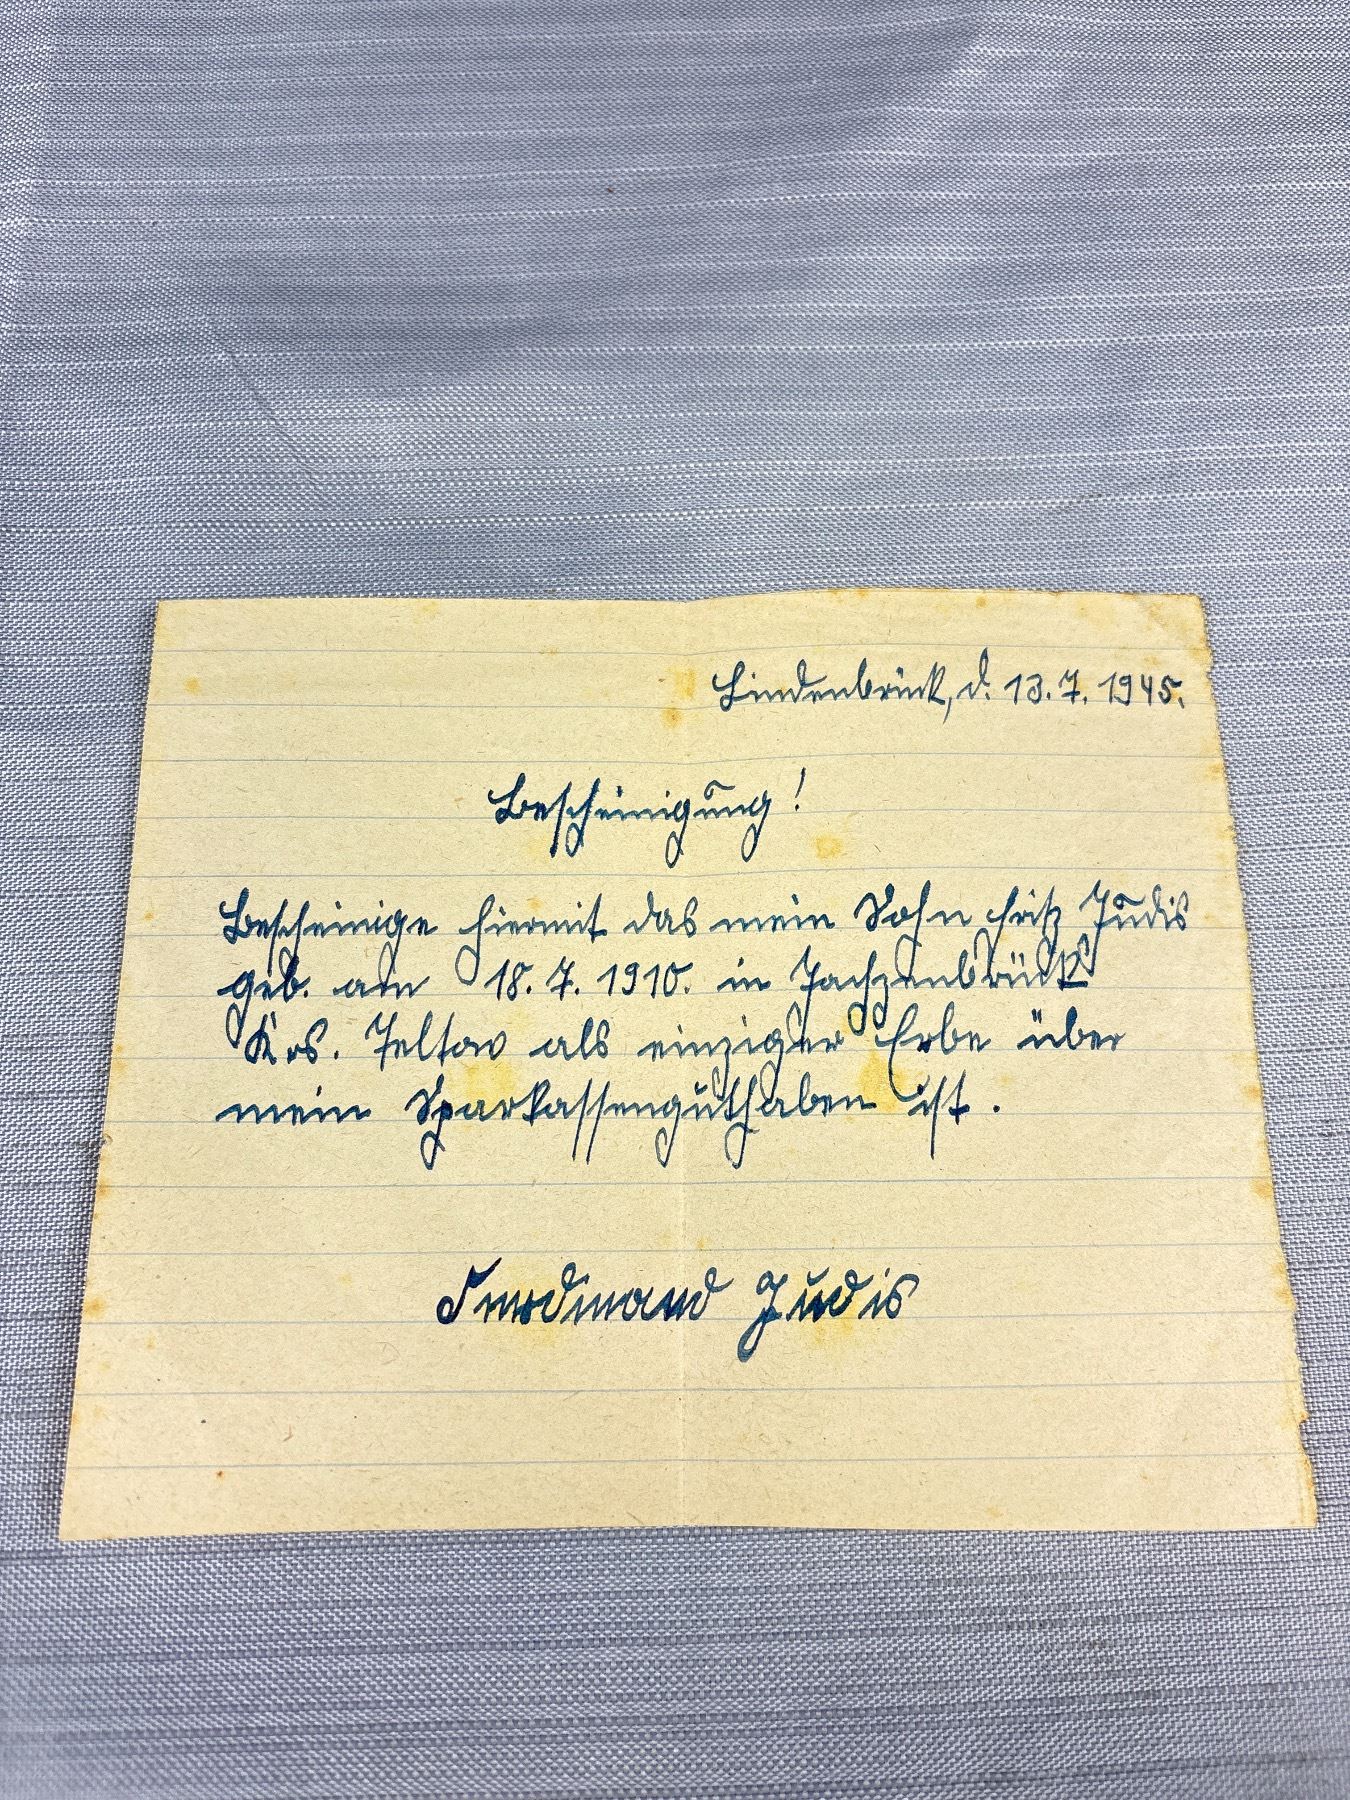 Lindenbrück, d. 13.7.1945.
Bescheinigung!
Bescheinige hiermit das mein Sohn Fritz Judis
geb. am 18.7.1910. in Jachzenbrück
Krs. Teltow als einziger Erbe über
mein Sparkassenguthaben ist.
Ferdinand Judis